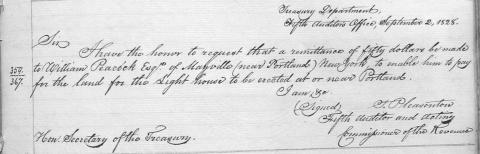 Treasury Department,
Fifth Auditors Office, September 2, 1828.
Sir,
I have the honor to request that a remittance of fifty dollars be made
357. to William Peacock Esqr. of Mayville (near Portland) New York, to enable him to pay
367. for the land for the Light house to be erected at or near Portland.
I am &c
(Signed) S. Pleasonton
Fifth Auditor and Acting
Commissioner of the Revenue
Hon. Secretary of the Treasury.